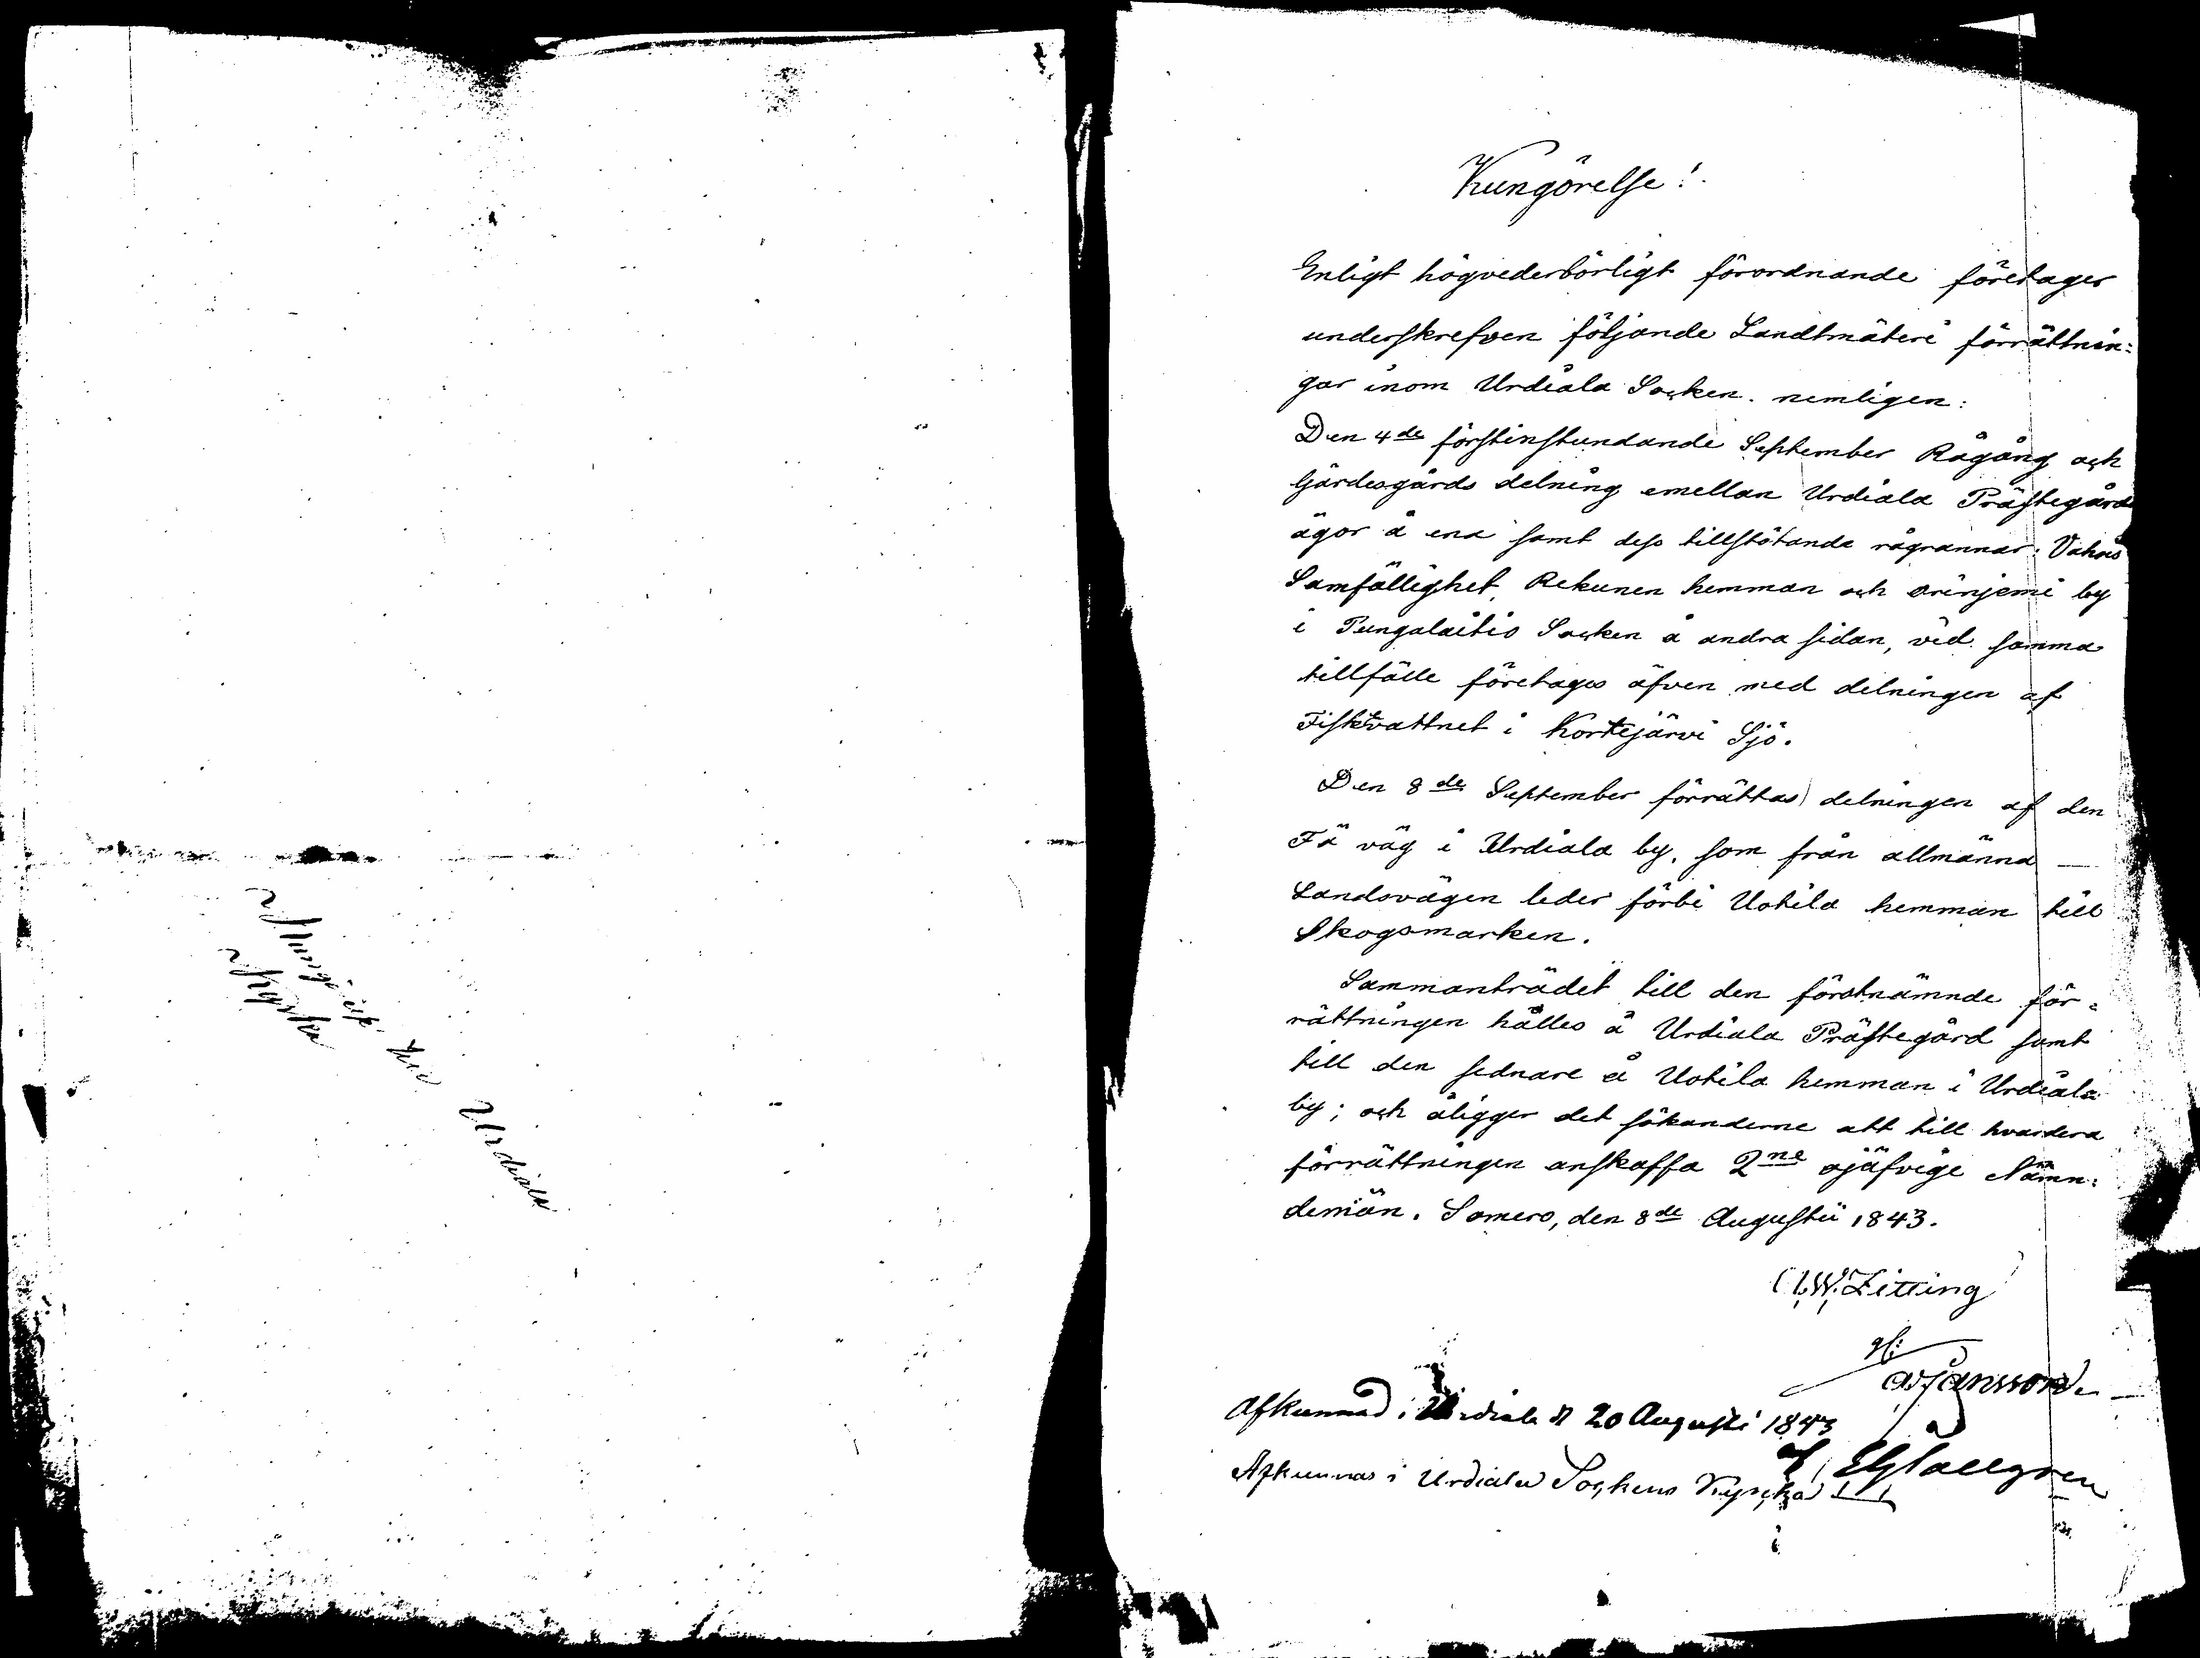 Kungörelse!
Enligt högvederbörligt förordnande företager
underskrefven följande Landtmäteri förrättnin=
gar inom Urdiala Socken. nemligen:
Den 4de förstinstundande September Rågång och
Gärdesgårds delning emellan Urdiala Prästegårds
ägor å ena samt dess tillstötande rågrannar: Vahois
Samfällighet, Rekunen hemman och
i Pungalaitio Socken å andra sidan, vid samma
tillfälle företages äfven med delningen af
Fiskvattnet i Kortejärvi Sjö.
Den 8de September förrättas delningen af den
Fä väg i Urdiala by, som från allmänna
Landsvägen leder förbi Uotila hemman till
Skogsmarken.
Sammanträdet till den förstnämnde för=
rättningen hålles å Urdiala Prästegård samt
till den sednare å Uotila hemman i Urdiala
by; och åligger det sökanderne att till hvardera
förrättningen anskaffa 2ne ojäfvige Nämn:
demän. Somero, den 8de Augustii 1843.
C.W. Zitting
Jansson
Afkunnad i Urdiala d 20 Augusti 1843
af
Afkunnas i Urdiala Sockens Kyrcka
Urdiala
Kyrka